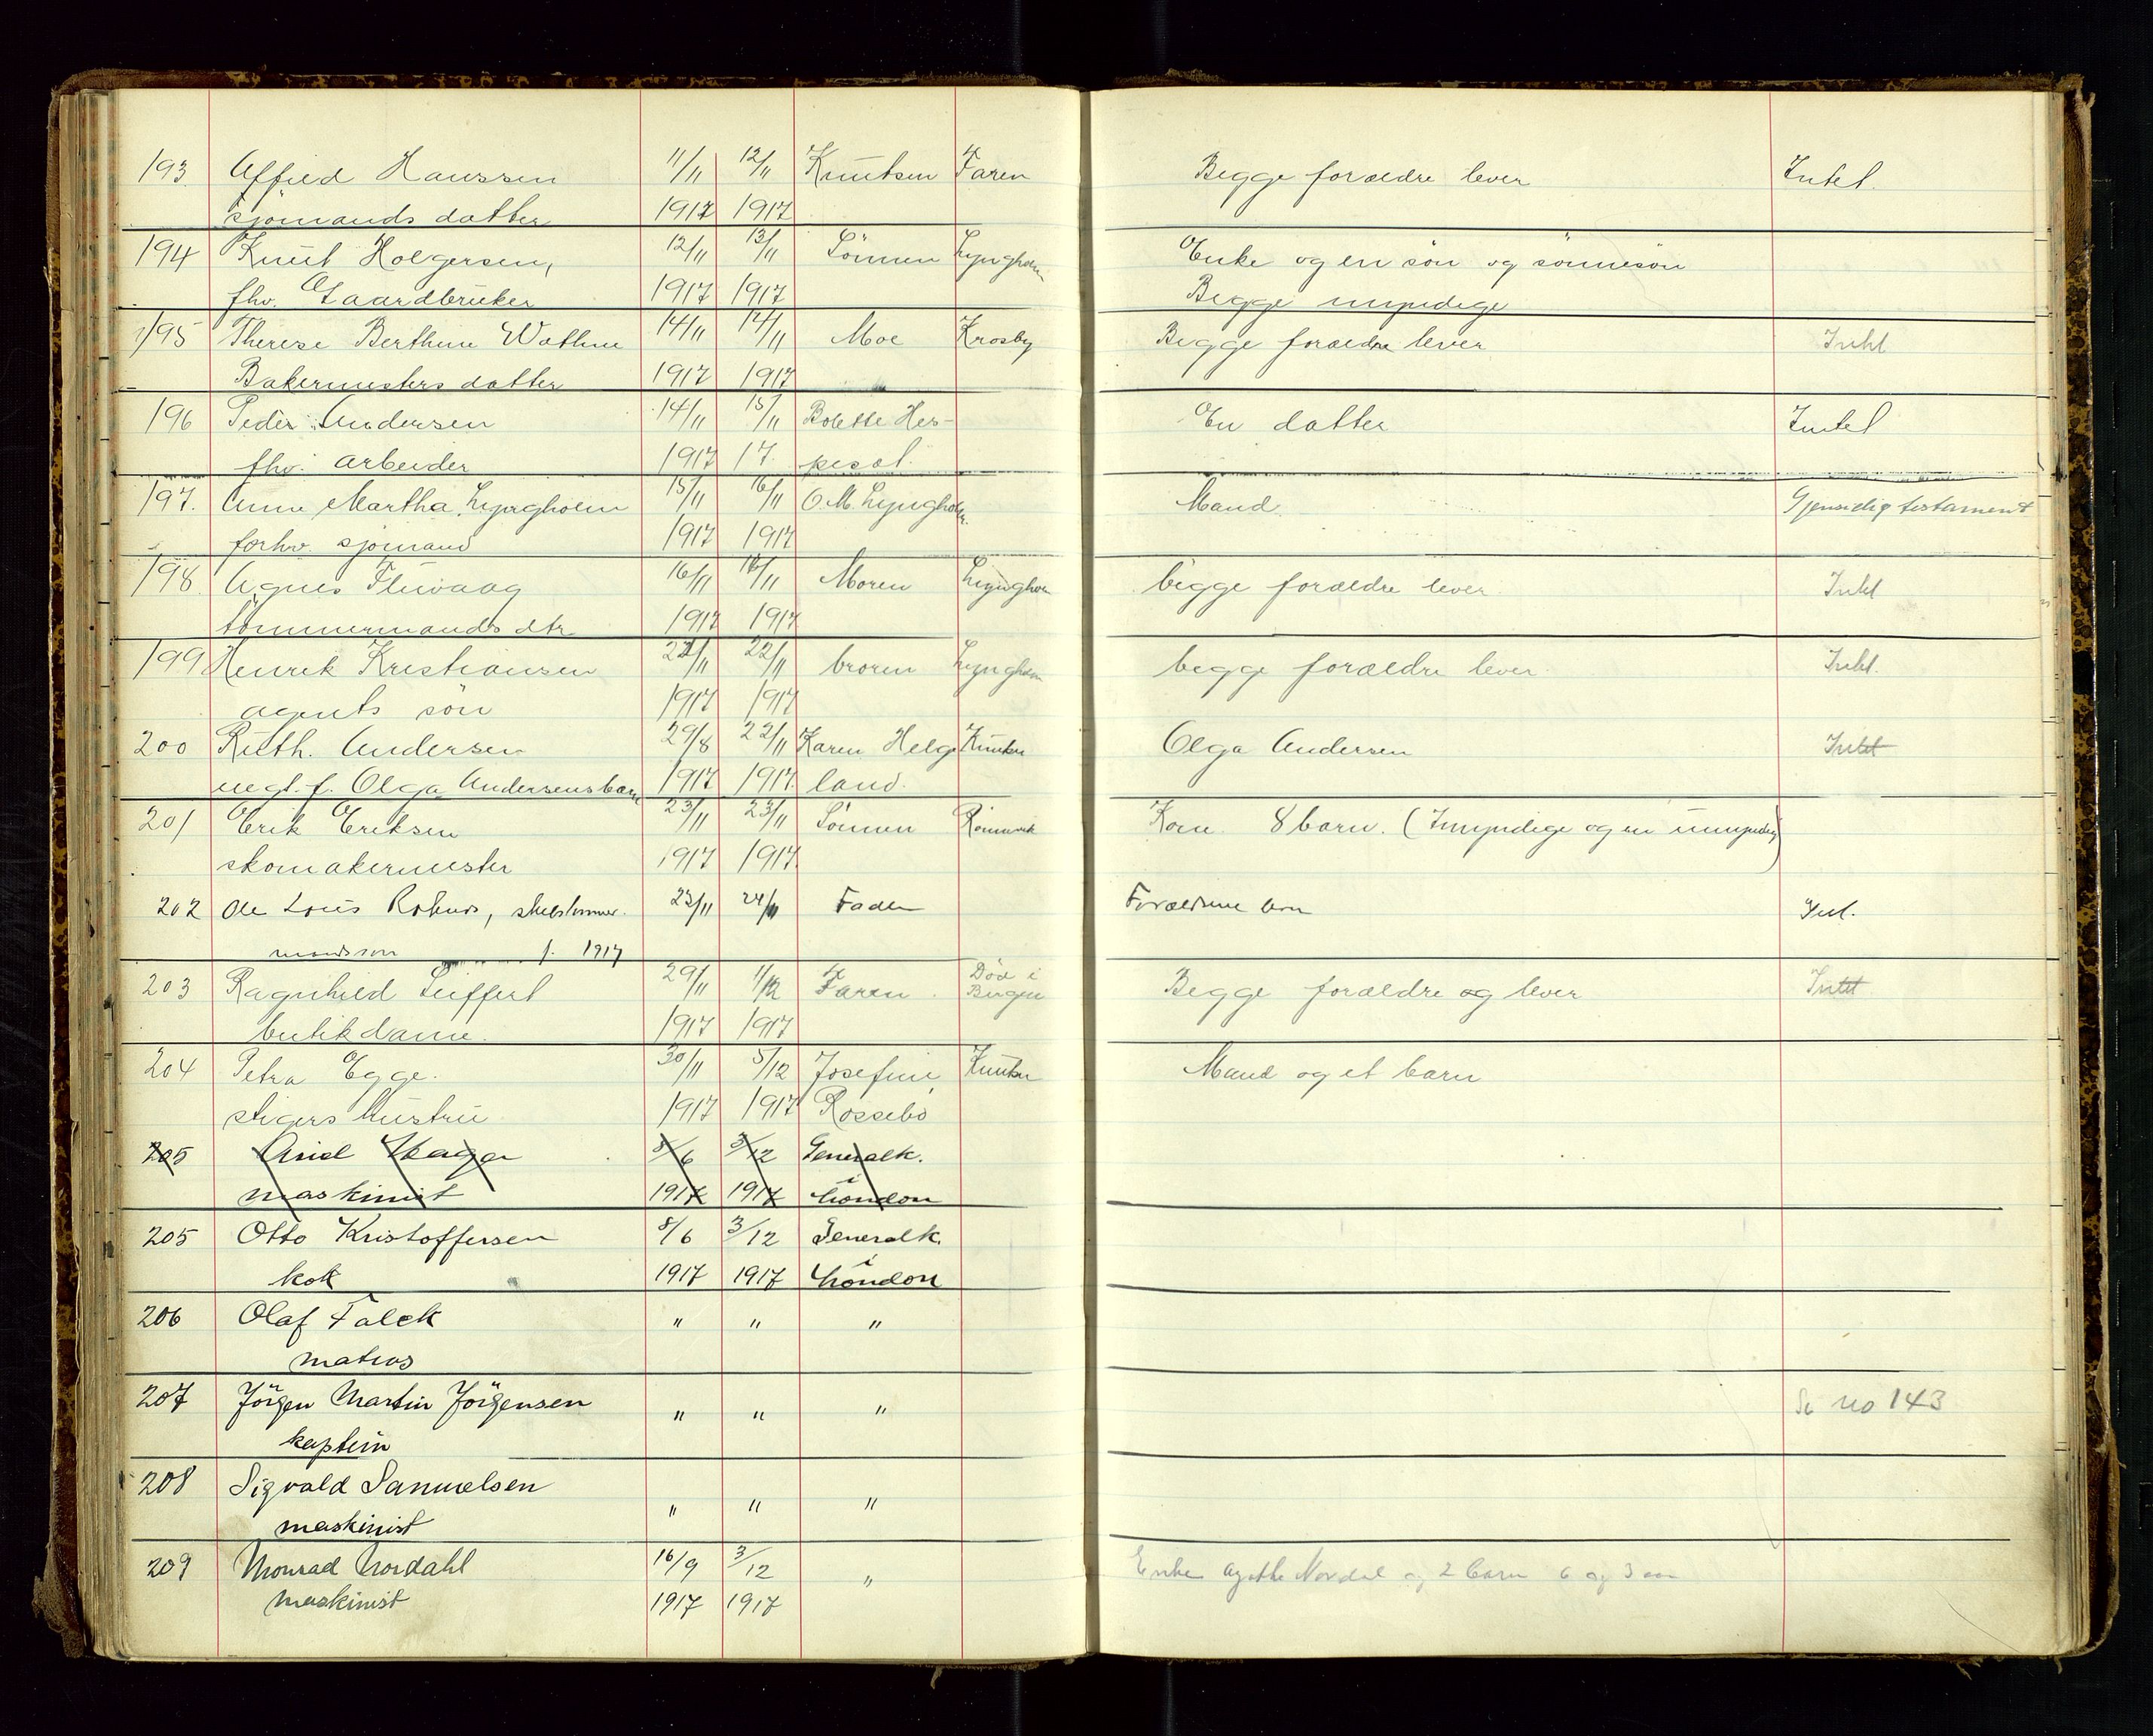 193 Alfred Hanssen 11/11 12/11 Knutsen Faren Begge forældre lever Intet.
sjömands datter 1917 1917
194 Knut Holgersen, 12/11 13/11 Sönnen Lyngholm Enke og en sön og sönnesön
fhv. Gaardbruker 1917 1917 Begge umyndige
195 Therese Berthine Wathne 14/11 14/11 Moe Krosby Begge forældre lever Intet
Bakermesters datter 1917 1917
196 Peder Andersen 14/11 15/11 Bolette Hes- En datter Intet
fhv. arbeider 1917 17
197. Anne Martha Lyngholm 15/11 16/11 O.M. Lyngholm. Mand Gjensidig testament
forhv. sjomand 1917 1917
198 Agnes 16/11 16/11 Moren Lyngholm begge forældre lever Intet
tömmermands dtr 1917 1917
199 Henrik Kristiansen 22/11 22/11 broren Lyngholm begge forældre lever Intet.
agents sön 1917 1917
200 Ruth. Andersen 29/8 22/11 Karen Helge Knutsen Olga Andersen Intet
uegt. f. Olga Andersens barn 1917 1917 land.
201 Erik Eriksen 23/11 23/11 Sönnen Kone. 8 barn. (7 myndige og en umyndig)
skomakermester 1917 1917
202 Ole Louis 23/11 24/11 Fader Forældrene Int.
mandssøn f. 1917
203 Ragnhild Seiffert 29/11 1/12 Faren Død i Begge forældre og lever Intet
butikdame. 1917 1917 Bergen
204 Petra Egge. 30/11 5/12 Josefine Knutsen Mand og et barn
stigers hustru 1917 1917 Rossebö
205 Arid Skaga 8/6 3/12 Generalk.
maskinist 1917 1917 i London
205 Otto Kristoffersen 8/6 3/12 Generalk.
kok 1917 1917 i London
206 Olaf Falck " " "
matros
207 Jörgen Martin Jörgensen " " " Se no 143
kaptein
208 Sigvald Samuelsen " " "
maskinist
209 Monrad Nordahl 16/9 3/12 " Enken Agathe Nordal og 2 barn 6 og 3 aar
maskinist 1917 1917